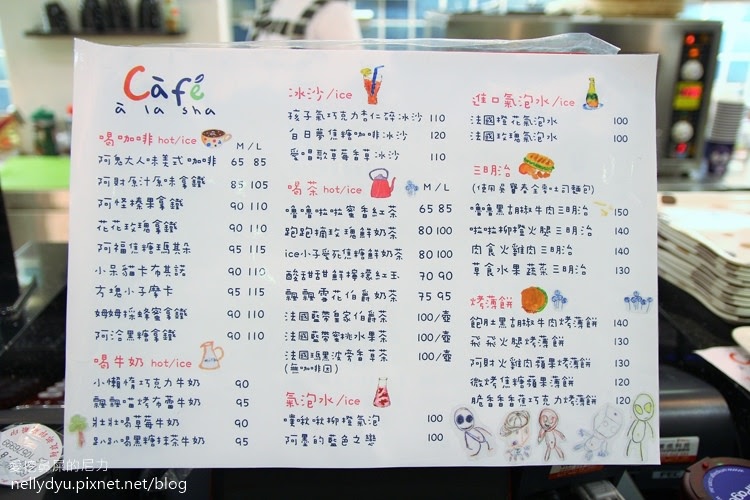 Càfé
à la sha
喝咖啡 hot/ice M/L
阿兔大人味美式咖啡 65 85
阿財原汁原味拿鐵 85 105
阿怪榛果拿鐵 90 110
花花玫瑰拿鐵 90 110
阿福焦糖瑪其朵 95 115
小呆貓卡布其諾 90 110
方塊小子摩卡 95 115
姆姆採蜂蜜拿鐵 90 110
阿洽黑糖拿鐵 90 110
喝牛奶 hot/ice
小懶惰巧克力牛奶 90
飄飄喵烤布蕾牛奶 95
壯壯喝草莓牛奶 90
趴趴喝黑糖抹茶牛奶 95
冰沙/ice
孩子氣巧克力杏仁碎冰沙 110
白日夢焦糖咖啡冰沙 120
愛唱歌草莓香草冰沙 110
喝茶 hot/ice M/L
嚕嚕啦啦蜜香紅茶 65 85
跑跑捕玫瑰鮮奶茶 80 100
ice小子愛死焦糖鮮奶茶 80 100
酸甜甜鮮檸檬紅玉 70 90
飄飄雪花伯爵奶茶 75 95
法國藍帶皇家伯爵茶 100/壺
法國藍帶蜜桃水果茶 100/壺
法國瑪黑波旁香草茶 100/壺
(無咖啡因)
氣泡水/ice
噗啾啾柳橙氣泡 100
阿墨的藍色之戀 100
進口氣泡水/ice
法國橙花氣泡水 100
法國玫瑰氣泡水 100
三明治
(使用吳寶春金賞吐司麵包)
嚕嚕黑胡椒牛肉三明治 150
啦啦柳橙火腿三明治 140
肉食火雞肉三明治 140
草食水果蔬菜三明治 130
烤薄餅
飽肚黑胡椒牛肉烤薄餅 140
飛飛火腿烤薄餅 130
阿財火雞肉蘋果烤薄餅 130
微烤焦糖蘋果薄餅 120
脆香香香蕉巧克力烤薄餅 120
nellydyu.pixnet.net/blog